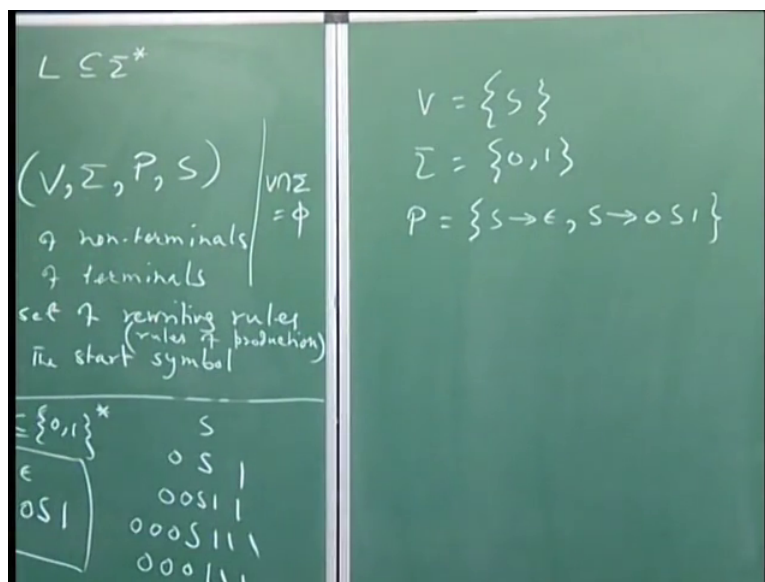 L ⊆ Σ*
(V, Σ, P, S)
V∩Σ
= φ
of non-terminals
of terminals
set of rewriting rules
(rules of production)
The start symbol
⊆ {0,1}*
ϵ
0S1
S
0 S 1
00S11
000S111
000111
V = {S}
Σ = {0,1}
P = {S→ϵ, S→0S1}